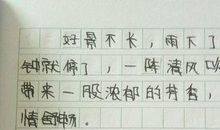 好景不长，雨下了
钟就停了，一阵清风
带来一股浓郁的芳香，
情舒畅。